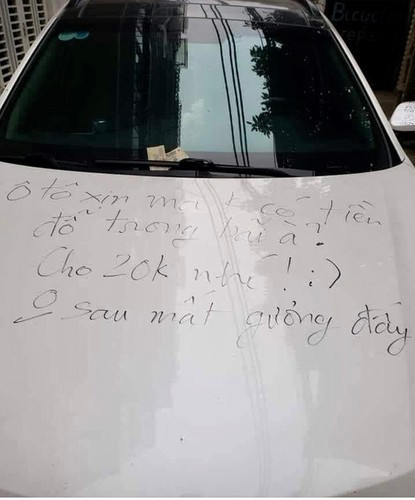 Ô tô xịn mà k có tiền
đỗ trong bãi à?
Cho 20k nhé! :)
0 sau mất gương đấy